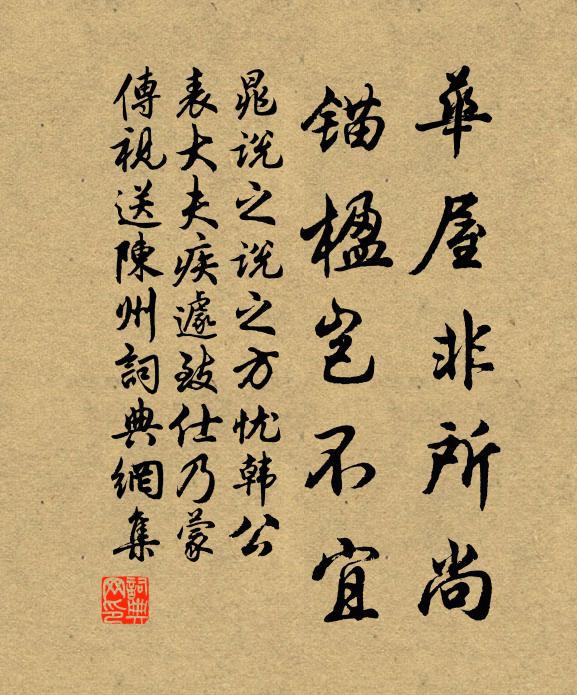 華屋非所尚
錨楹岂不宜
晁説之説之方忧韩公
表大夫疾遽致仕乃蒙
傳視送陳州詞典網集
詞典
网印